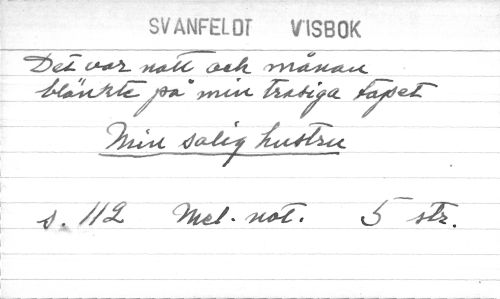 SVANFELDT VISBOK
Det var natt och månan
blänkte på min trasiga tapet
Min salig hustru
s. 112 Mel. not. 5 str.